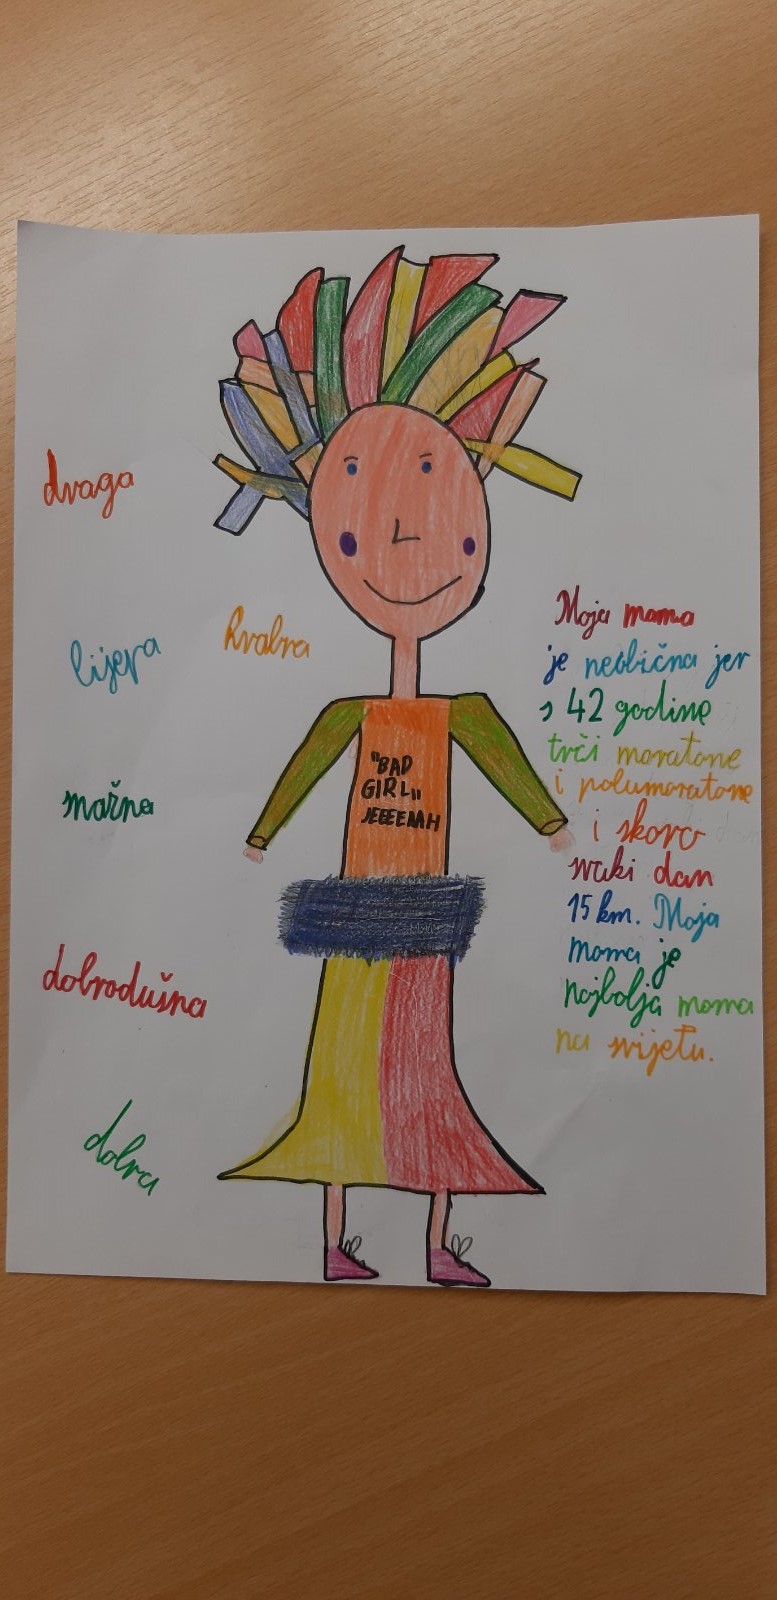 draga
lijepa
hrabra
"BAD
GIRL"
JEEEEAAH
snažna
dobrodušna
dobra
Moja mama
je neobična jer
s 42 godine
trči maratone
i polumaratone
i skoro
svaki dan
15 km. Moja
mama je
najbolja mama
na svijetu.